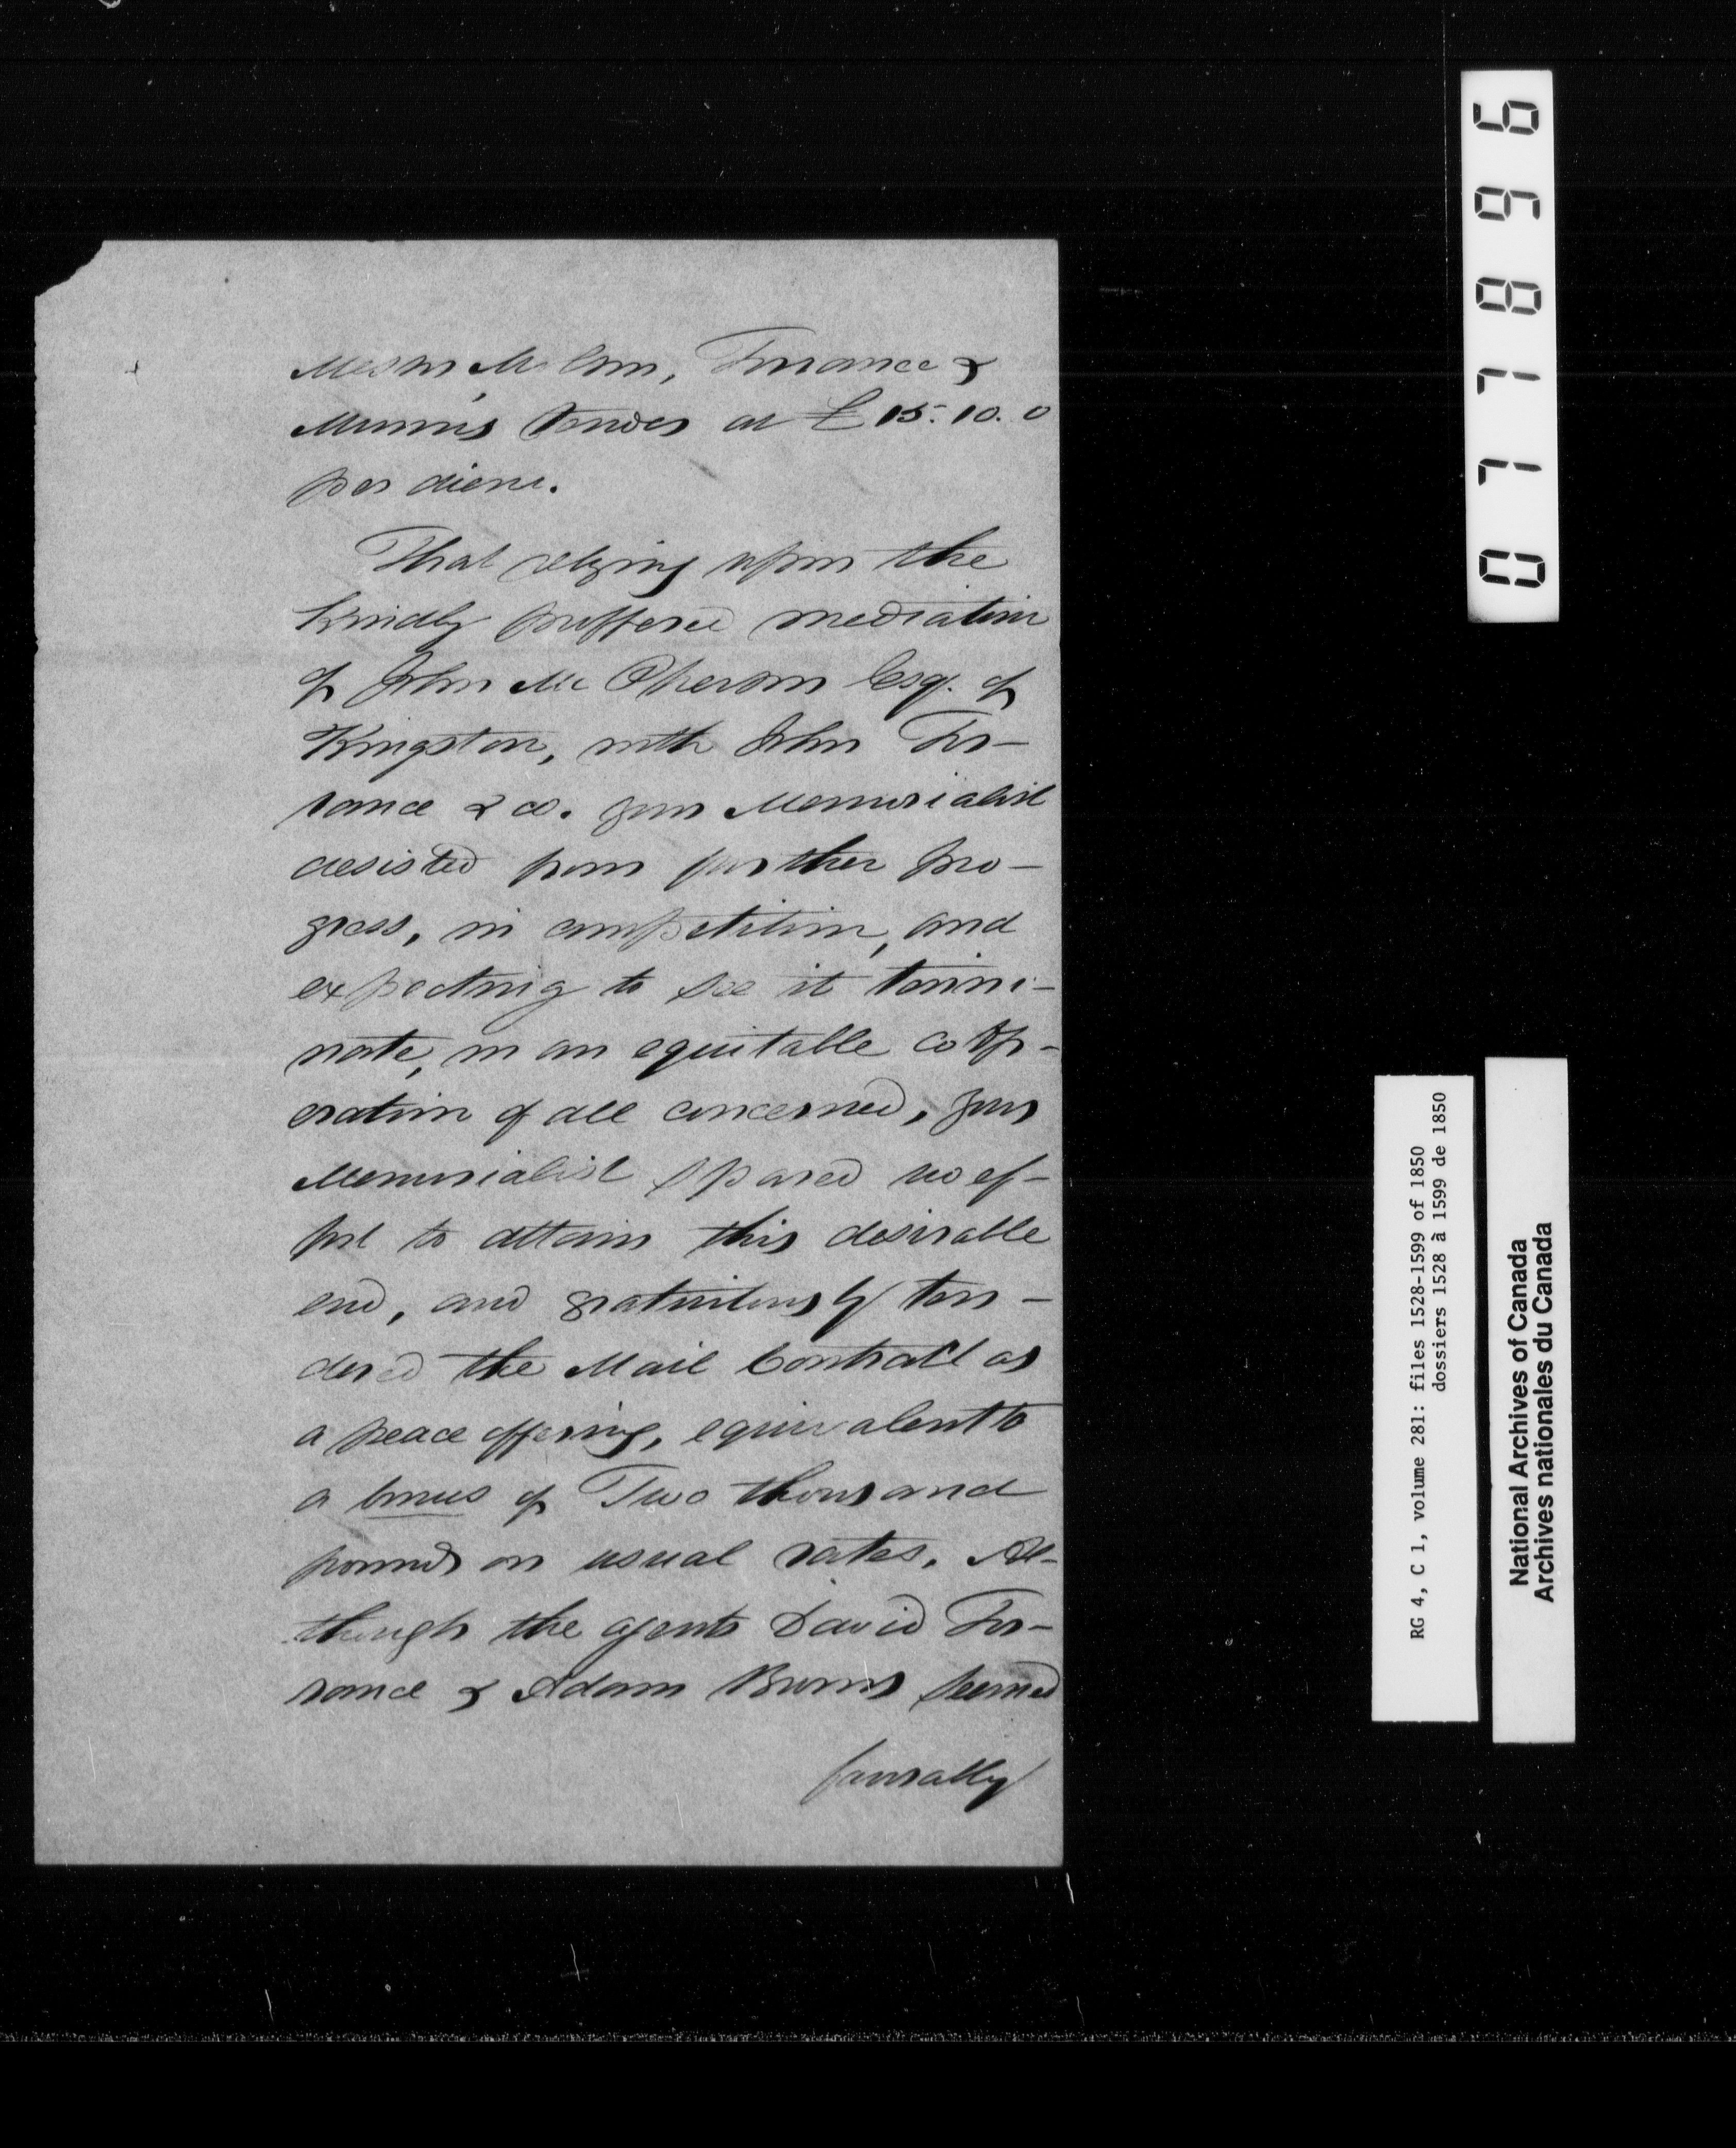 Messrs Molson, Torrance &
Munn's Tender at £15.10.0
per diem.
That relying upon the
kindly proffered mediation
of John McPherson Esq. of
Kingston, with John Tor-
rance & co. your Memorialist
desisted from further pro-
gress, in competition, and
expecting to see it termi-
nate, in an equitable coöp-
eration of all concerned, your
Memorialist spared no ef-
fort to attain this desirable
end, and gratuitously ten-
dered the Mail Contract as
a peace offering, equivalent to
a bonus of Two thousand
pounds on usual rates. Al-
though the agents David Tor-
rance & Adam Burns seemed
favorably
077896
RG 4, C 1, volume 281: files 1528-1599 of 1850
dossiers 1528 à 1599 de 1850
National Archives of Canada
Archives nationales du Canada